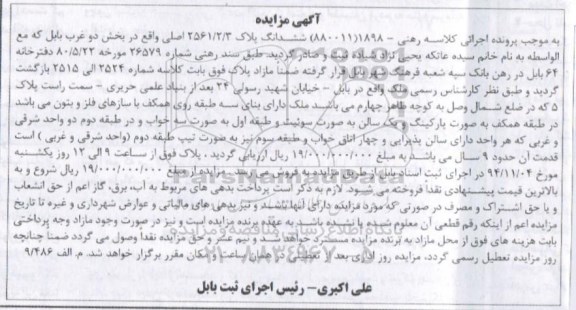 آگهی مزایده
به موجب پرونده اجرائی کلاسه رهنی – ۱۸۹۸(۸۸۰۰۱۱) ششدانگ پلاک ۲۵۶۱/۲/۳ اصلی واقع در بخش دو غرب بابل که مع
الواسطه به نام خانم سیده عاتکه یحیی نژاد ثبت و صادر گردید، طبق سند رهنی شماره ۳۶۵۷۹ مورخه ۸۰/۵/۲۲ دفترخانه
۶۴ بابل در رهن بانک سپه شعبه فرهنگ شهر بابل قرار گرفته ضمناً مازاد پلاک فوق بابت کلاسه شماره ۳۵۲۴ الی ۲۵۱۵ بازگشت
گردید و طبق نظر کارشناس رسمی ملک واقع در بابل – خیابان شهید رسولی ۲۴ بعد از بنیاد علمی حریری – سمت راست پلاک
۵ که در ضلع شمال وصل به کوچه طاهر چهارم می باشد ملک دارای بنای سه طبقه روی همکف با سازهای فلز و بتون می باشد
در طبقه همکف به صورت پارکینگ و یک سالن به صورت سوئیت و طبقه اول به صورت سه خواب و در طبقه دوم دو واحد شرقی
و غربی که هر واحد دارای سالن پذیرایی و چهار اتاق خواب و طبقه سوم نیز به صورت تیپ طبقه دوم (واحد شرقی و غربی ) است
قدمت آن حدود ۹ سال می باشد به مبلغ ۱۹/۰۰۰/۰۰۰/۰۰۰ ریال ارزیابی گردید ، پلاک فوق از ساعت ۹ الی ۱۲ روز یکشنبه
مورخ ۹۴/۱۱/۰۴ در اجرای ثبت اسناد بابل از طریق مزایده به فروش می رسد. مزایده از مبلغ ۱۹/۰۰۰/۰۰۰/۰۰۰ ریال شروع و به
بالاترین قیمت پیشنهادی نقداً فروخته می شود. لازم به ذکر است پرداخت بدهی های مربوط به آب، برق، گاز اعم از حق انشعاب
و یا حق اشتراک و مصرف در صورتی که مورد مزایده دارای آنها باشد و نیز بدهی های مالیاتی و عوارض شهرداری و غیره تا تاریخ
مزایده اعم از اینکه رقم قطعی آن معلوم شده یا نشده باشد به عهده برنده مزایده است و نیز در صورت وجود مازاد وجه پرداختی
بابت هزینه های فوق از محل مازاد به برنده مزایده مسترد خواهد شد و نیم عشر و حق مزایده نقداً وصول می گردد ضمناً چنانچه
روز مزایده تعطیل رسمی گردد، مزایده روز اداری بعد از تعطیلی در همان ساعت و مکان مقرر برگزار خواهد شد. م. الف ۹/۴۸۶
علی اکبری– رئیس اجرای ثبت بابل